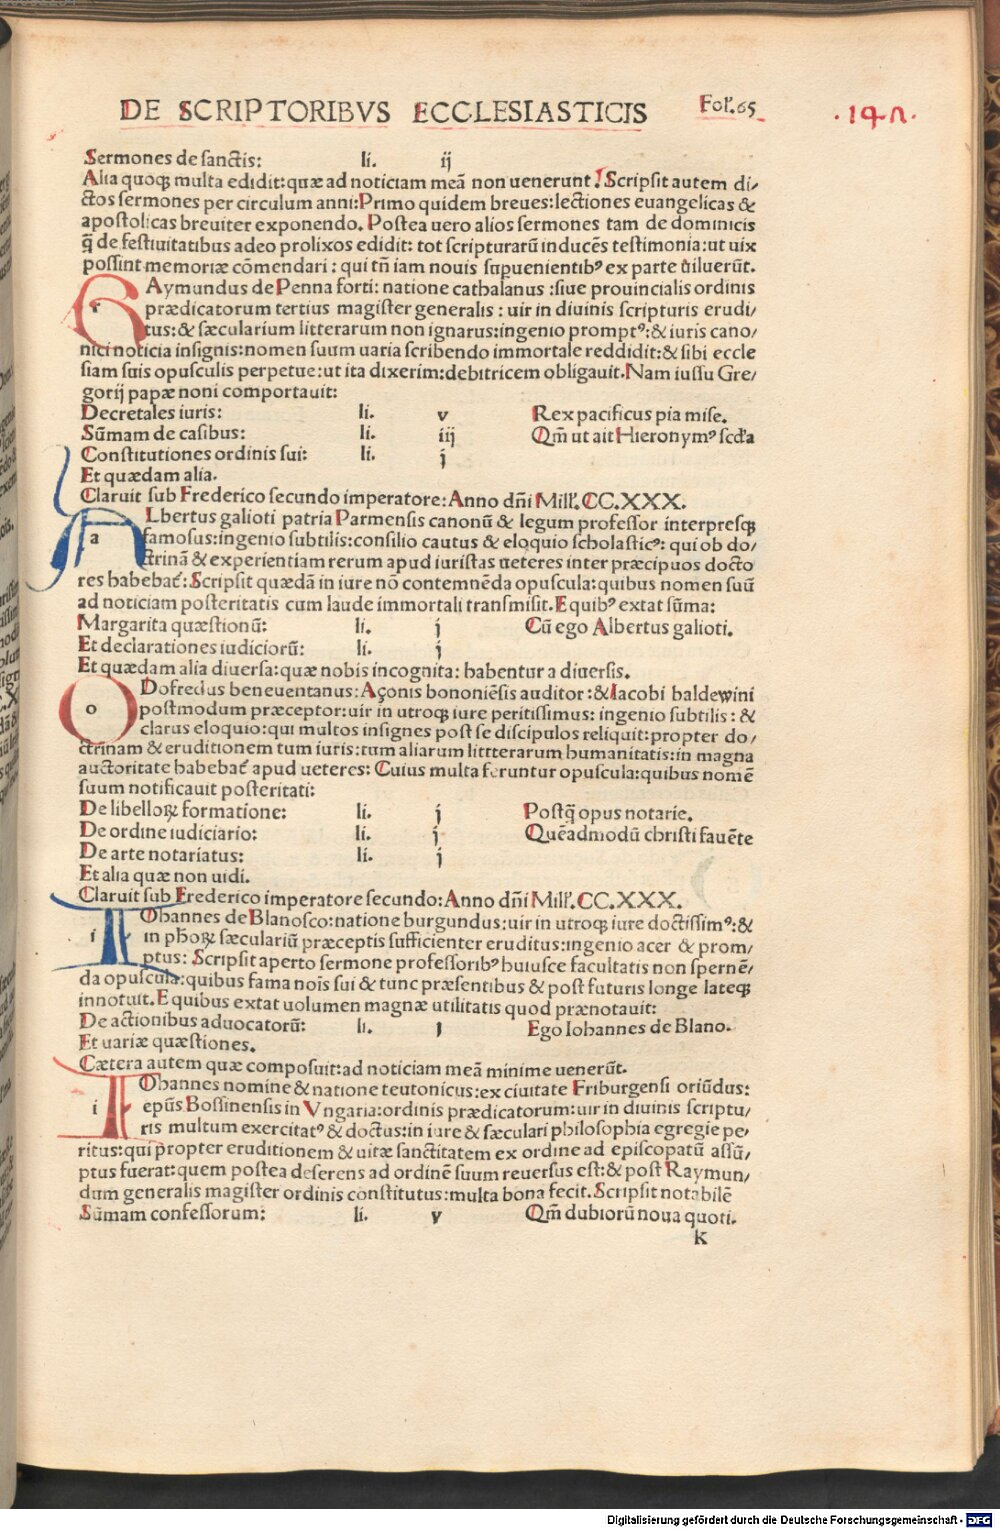 DE SCRIPTORIBVS ECCLESIASTICIS Fol'.65
Sermones de sanctis: li. ij
Alia quoqꝫ multa edidit:quæ ad noticiam meā non uenerunt. Scripsit autem di/
ctos sermones per circulum anni:Primo quidem breues:lectiones euangelicas &
apostolicas breuiter exponendo. Postea uero alios sermones tam de dominicis
q̄ de festiuitatibus adeo prolixos edidit: tot scripturarū inducēs testimonia:ut uix
possint memoriæ cōmendari : qui tn̄ iam nouis supuenientibꝰ ex parte uiluerūt.
r Aymundus de Penna forti: natione cathalanus :siue prouincialis ordinis
prædicatorum tertius magister generalis : uir in diuinis scripturis erudi/
tus:& sæcularium litterarum non ignarus:ingenio promptꝰ:& iuris cano/
nici noticia insignis:nomen suum uaria scribendo immortale reddidit:& sibi eccle
siam suis opusculis perpetue:ut ita dixerim:debitricem obligauit.Nam iussu Gre/
gorij papæ noni comportauit:
Decretales iuris: li. v Rex pacificus pia mise.
Sūmam de casibus: li. iij Qm̄ ut ait Hieronymꝰ scd'a
Constitutiones ordinis sui: li. j
Et quædam alia.
Claruit sub Frederico secundo imperatore: Anno dn̄i Mill'. CC.XXX.
a Lbertus galioti patria Parmensis canonū & legum professor interpresqꝫ
famosus:ingenio subtilis:consilio cautus & eloquio scholasticꝰ: qui ob do/
ctrinā & experientiam rerum apud iuristas ueteres inter præcipuos docto
res habebat': Scripsit quædā in iure nō contemnēda opuscula:quibus nomen suū
ad noticiam posteritatis cum laude immortali transmisit. E quibꝰ extat sūma:
Margarita quæstionū: li. j Cū ego Albertus galioti.
Et declarationes iudiciorū: li. j
Et quædam alia diuersa:quæ nobis incognita: habentur a diuersis.
o Dofredus beneuentanus: Açonis bononiēsis auditor :& Iacobi baldewini
postmodum præceptor:uir in utroqꝫ iure peritissimus: ingenio subtilis : &
clarus eloquio:qui multos insignes post se discipulos reliquit:propter do/
ctrinam & eruditionem tum iuris:tum aliarum littterarum humanitatis:in magna
auctoritate habebat' apud ueteres: Cuius multa feruntur opuscula:quibus nomē
suum notificauit posteritati:
De libelloꝝ formatione: li. j Postq̄ opus notarie.
De ordine iudiciario: li. j Quēadmodū christi fauēte
De arte notariatus: li. j
Et alia quæ non uidi.
Claruit sub Frederico imperatore secundo: Anno dn̄i Mill'. CC.XXX.
i Ohannes de Blanosco:natione burgundus:uir in utroqꝫ iure doctissimꝰ:&
in ph'oꝝ sæculariū præceptis sufficienter eruditus:ingenio acer & prom/
ptus: Scripsit aperto sermone professoribꝰ huiusce facultatis non spernē/
da opuscula:quibus fama nois sui & tunc præsentibus & post futuris longe lateqꝫ
innotuit. E quibus extat uolumen magnæ utilitatis quod prænotauit:
De actionibus aduocatorū: li. j Ego Iohannes de Blano.
Et uariæ quæstiones.
Cætera autem quæ composuit:ad noticiam meā minime uenerūt.
i Ohannes nomine & natione teutonicus:ex ciuitate Friburgensi oriūdus:
ep̄us Bossinensis in Vngaria:ordinis prædicatorum:uir in diuinis scriptu/
ris multum exercitatꝰ & doctus:in iure & sæculari philosophia egregie pe/
ritus:qui propter eruditionem & uitæ sanctitatem ex ordine ad episcopatū assū/
ptus fuerat:quem postea deserens ad ordinē suum reuersus est:& post Raymun/
dum generalis magister ordinis constitutus:multa bona fecit. Scripsit notabilē
Sūmam confessorum: li. v Qm̄ dubiorū noua quoti.
K
Digitalisierung gefördert durch die Deutsche Forschungsgemeinschaft - DFG